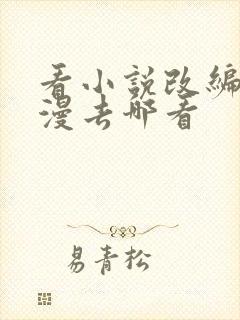 看小说改编
漫去哪看
易青松